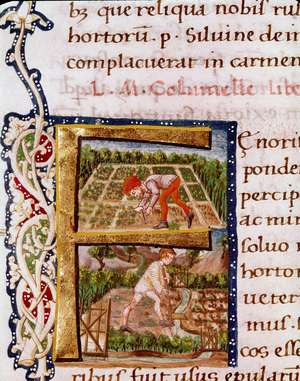 bꝫ que reliqua nobis ru
hortorū. p. Siluine de in
complacuerat in carmen
L. M. Columelle libe
FEnori
ponde
percip
ac mi
soluo
hortor
ueter
mus.
cos esse
ribus fuit usus epularu